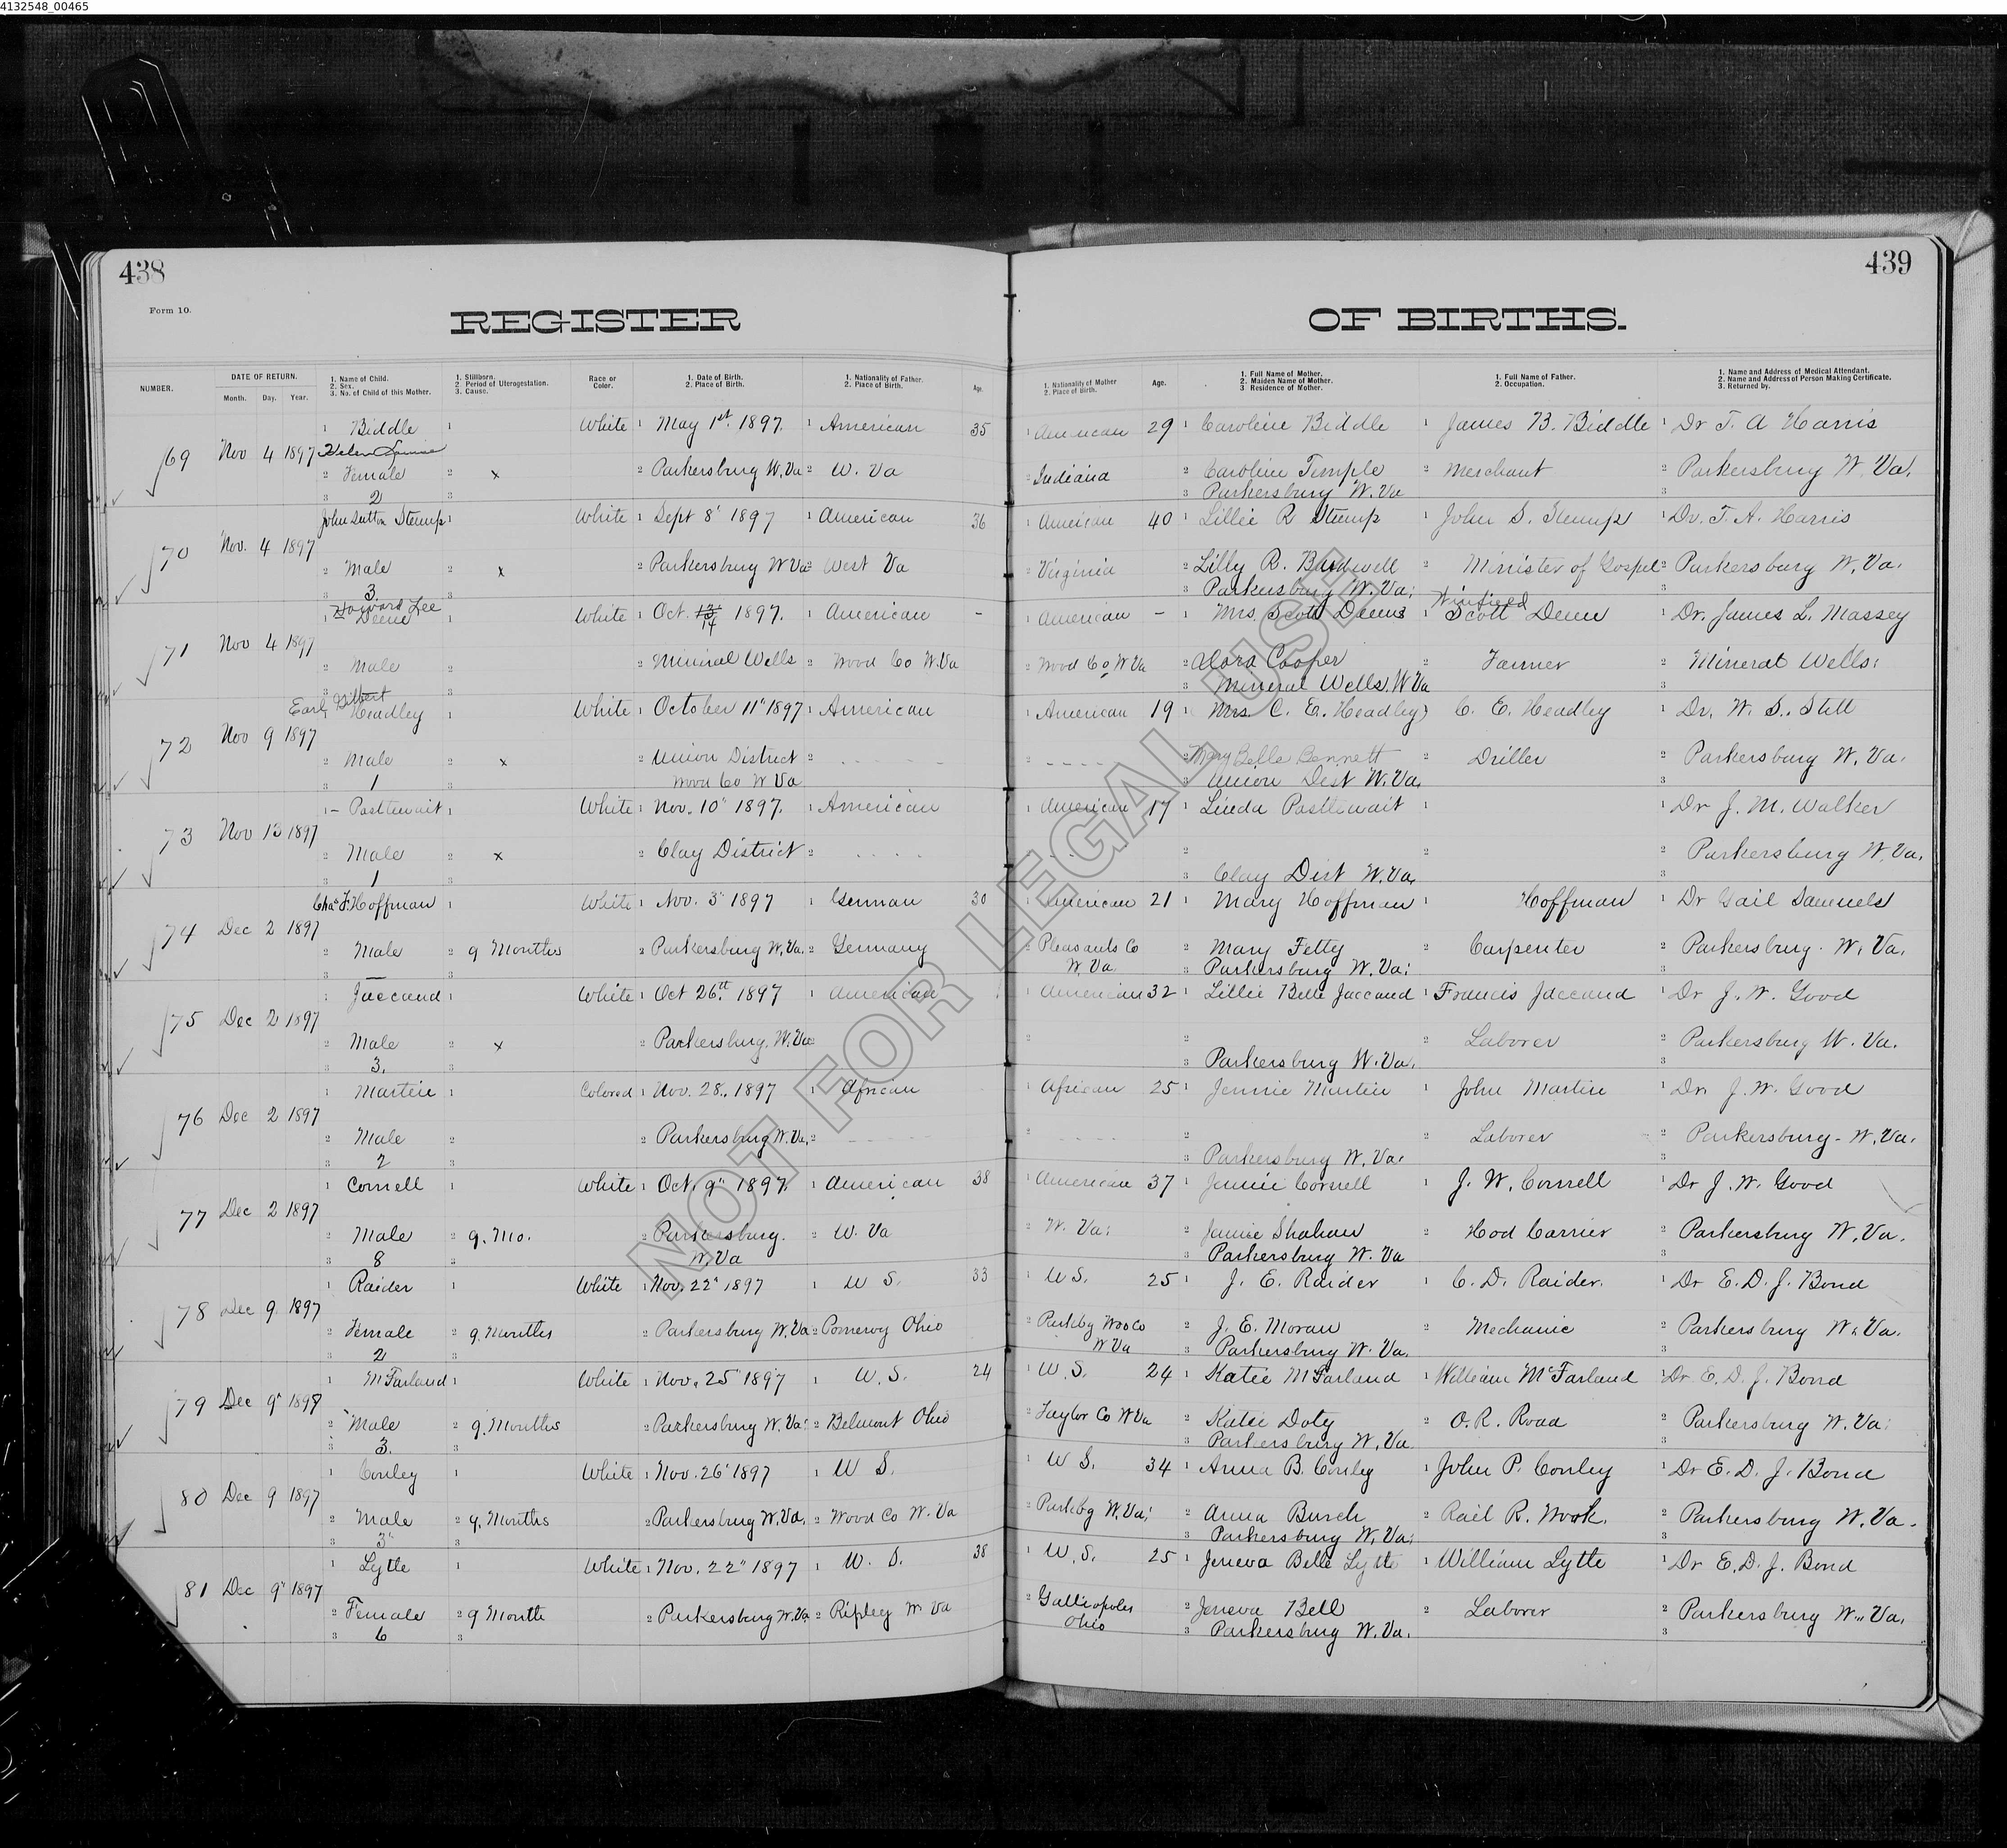 4132548_00465
438
439
Form 10.
REGISTER OF BIRTHS.
NUMBER.
DATE OF RETURN.
Month. Day. Year.
1. Name of Child.
2. Sex.
3. No. of Child of this Mother.
1. Stillborn.
2. Period of Uterogestation.
3. Cause.
Race or Color.
1. Date of Birth.
2. Place of Birth.
1. Nationality of Father.
2. Place of Birth.
Age.
1. Nationality of Mother
2. Place of Birth.
Age.
1. Full Name of Mother.
2. Maiden Name of Mother.
3 Residence of Mother.
1. Full Name of Father.
2. Occupation.
1. Name and Address of Medical Attendant.
2. Name and Address of Person Making Certificate.
3. Returned by.
1 Biddle 1 White 1 May 1st. 1897. 1 American 35 1 American 29 1 Caroline Biddle 1 James B. Biddle 1 Dr T. A Harris
69 Nov 4 1897 Helen Louise
2 Female 2 x 2 Parkersburg W. Va 2 W. Va 2 Indiana 2 Caroline Temple 2 Merchant 2 Parkersburg W. Va.
3 2 3 3 Parkersburg W. Va 3
John Sutton Stump 1 White 1 Sept 8" 1897 1 American 36 1 American 40 1 Lillie R Stump 1 John S. Stump 1 Dr. T. A. Harris
70 Nov. 4 1897
2 Male 2 x 2 Parkersburg W Va 2 West Va 2 Virginia 2 Lilly R. Bardwell 2 Minister of Gospel 2 Parkersburg W. Va.
3 3 3 3 Parkersburg W. Va. 3
Howard Lee Winfield
1 Deem 1 White 1 Oct. 13 14 1897. 1 American - 1 American - 1 Mrs. Scott Deems 1 Scott Deem 1 Dr. James L. Massey
71 Nov 4 1897
2 Male 2 2 Mineral Wells 2 Wood Co W. Va 2 Wood Co W Va 2 Cooper 2 Farmer 2 Mineral Wells.
3 3 3 Mineral Wells, W Va 3
Earl Gilbert
1 Headley 1 White 1 October 11" 1897 1 American 1 American 19 1 Mrs. C. E. Headley 1 C. E. Headley 1 Dr. W. S. Stell
72 Nov 9 1897
2 Male 2 x 2 Union District 2 - - - - 2 - - - - 2 Mary Belle Bennett 2 Driller 2 Parkersburg W. Va.
3 1 3 Wood Co W Va 3 Union Dist W. Va. 3
1 - Postlewait 1 White 1 Nov. 10" 1897. 1 American 1 American 17 1 Linda Postlewait 1 1 Dr J. M. Walker
73 Nov 13 1897
2 Male 2 x 2 Clay District 2 . . . . 2 2 2 Parkersburg W. Va.
3 1 3 3 Clay Dist W. Va. 3
Chas F. Hoffman 1 White 1 Nov. 3" 1897 1 German 30 1 American 21 1 Mary Hoffman 1 Hoffman 1 Dr Gail Samuels
74 Dec 2 1897
2 Male 2 9 Months 2 Parkersburg W. Va. 2 Germany 2 Pleasants Co 2 Mary Fetty 2 Carpenter 2 Parkersburg. W. Va.
3 - 3 W. Va. 3 Parkersburg W. Va. 3
1 Jaccaud 1 White 1 Oct 26th. 1897 1 American 1 American 32 1 Lillie Belle Jaccaud 1 Francis Jaccaud 1 Dr J. W. Good
75 Dec 2 1897
2 Male 2 x 2 Parkersburg. W. Va 2 2 2 Laborer 2 Parkersburg W. Va.
3 3. 3 3 Parkersburg W. Va. 3
1 Martin 1 Colored 1 Nov. 28., 1897 1 African 1 African 25 1 Jennie Martin 1 John Martin 1 Dr. J. W. Good
76 Dec 2 1897
2 Male 2 2 Parkersburg W. Va. 2 - - - - 2 - - - - 2 2 Laborer 2 Parkersburg - W. Va.
3 2 3 3 Parkersburg W. Va. 3
1 Cornell 1 White 1 Oct. 9" 1897. 1 American 38 1 American 37 1 Jennie Cornell 1 J. W. Cornell 1 Dr J. W. Good
77 Dec 2 1897
2 Male 2 9. Mo. 2 Parkersburg. 2 W. Va 2 W. Va. 2 Jennie Shahan 2 Hod Carrier 2 Parkersburg W. Va.
3 8 3 W. Va 3 Parkersburg W. Va 3
1 Raider 1 White 1 Nov. 22" 1897 1 U S. 33 1 U S. 25 1 J. E. Raider 1 C. D. Raider. 1 Dr E. D. J. Bond
78 Dec 9. 1897
2 Female 2 9. Months 2 Parkersburg W. Va 2 Pomeroy Ohio 2 Parkbg Woo Co 2 J. E. Moran 2 Mechanic 2 Parkersburg W. Va.
3 2 3 W Va 3 Parkersburg W. Va. 3
1 McFarland 1 White 1 Nov. 25" 1897 1 U. S. 24 1 U. S. 24 1 Katie McFarland 1 William McFarland 1 Dr E. D. J. Bond
79 Dec 9" 1897
2 Male 2 9. Months 2 Parkersburg W. Va. 2 Belmont Ohio 2 Taylor Co W Va 2 Katie Doty 2 O. R. Road 2 Parkersburg W. Va.
3 3. 3 3 Parkersburg W. Va. 3
1 Conley 1 White 1 Nov. 26" 1897 1 U S. 1 U S. 34 1 Anna B. Conley 1 John P. Conley 1 Dr E. D. J. Bond
80 Dec 9 1897
2 Male 2 9. Months 2 Parkersburg W. Va. 2 Wood Co W. Va 2 Parkbg W. Va. 2 Anna Burch 2 Rail R. Work. 2 Parkersburg W. Va.
3 3" 3 3 Parkersburg W. Va. 3
1 Lytle 1 White 1 Nov. 22" 1897 1 U. S. 38 1 U. S. 25 1 Jeneva Belle Lytle 1 William Lytle 1 Dr E. D. J. Bond
81 Dec 9" 1897
2 Female 2 9 Month 2 Parkersburg W. Va 2 Ripley W Va 2 Gallipolis 2 Jeneva Bell 2 Laborer 2 Parkersburg W. Va.
3 6 3 Ohio 3 Parkersburg W. Va. 3
NOT FOR LEGAL USE